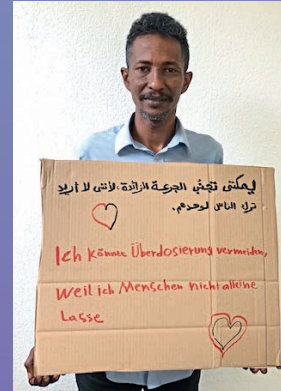 يمكنني تجنب الجرعة الزائدة، لأنني لا أريد
ترك الناس لوحدهم.
Ich können Überdosierung vermeiden,
weil ich Menschen nicht alleine
Lasse